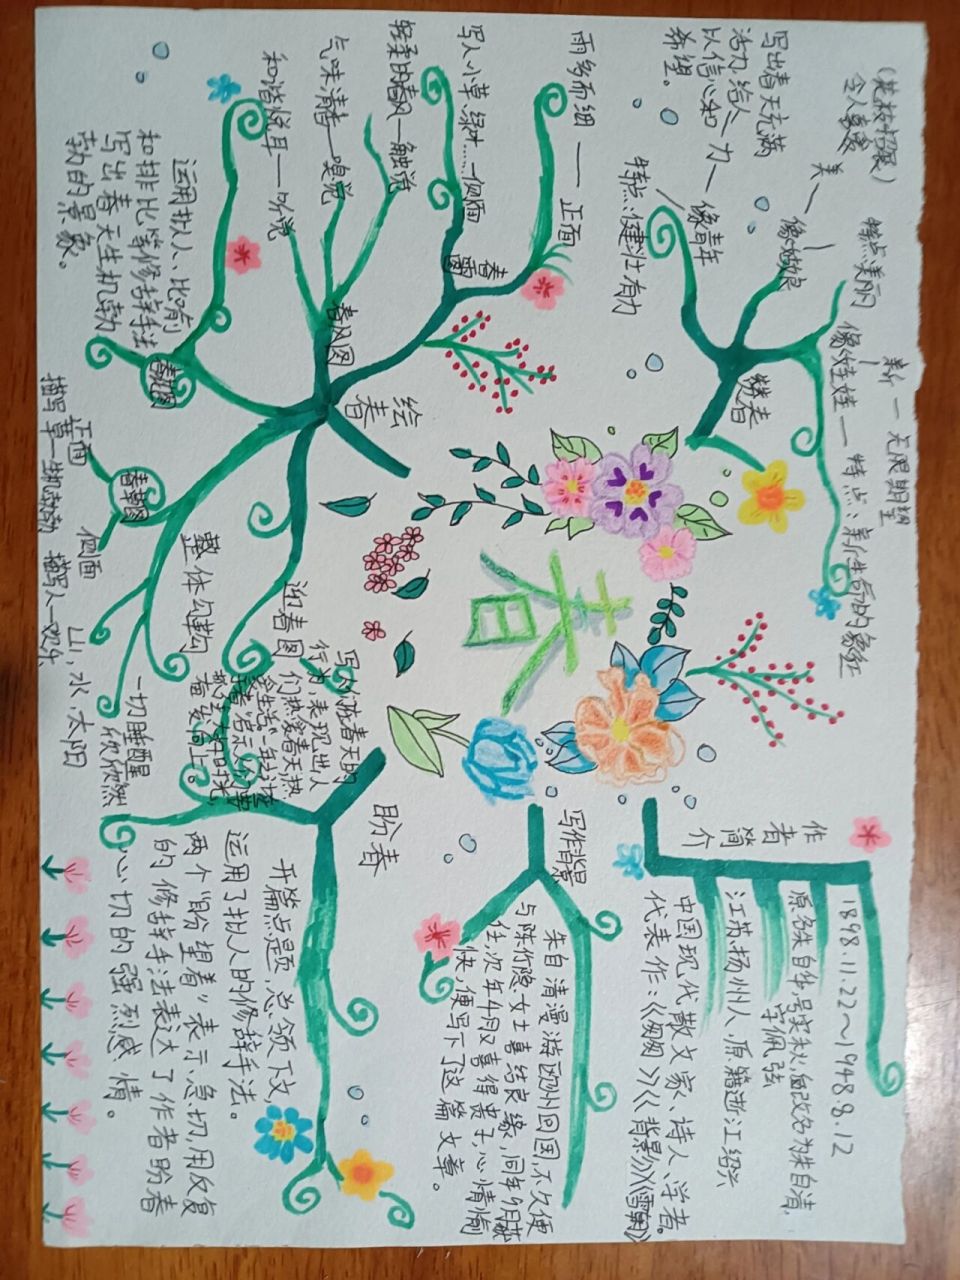 春
作者简介
1898.11.22～1948.8.12
原名朱自华,号实秋,后改名为朱自清,
字佩弦
江苏扬州人,原籍浙江绍兴
中国现代散文家、诗人、学者。
代表作:《匆匆》《背影》《雪朝》
写作背景
朱自清漫游欧洲回国,不久便
与陈竹隐女士喜结良缘,同年9月就
任,次年4月又喜得贵子,心情愉
快,便写下了这篇文章。
盼春
开篇点题,总领下文,
运用了拟人的修辞手法。
两个“盼望着”表示急切,用反复
的修辞手法表达了作者盼春
心切的强烈感情。
绘春
整体勾勒
一切睡醒
欣欣然
山,水,太阳
春草图
正面
描写草—生机勃勃
侧面
描写人—欢乐
春花图
运用拟人、比喻
和排比等修辞手法
写出春天生机勃
勃的景象。
春风图
轻柔的春风—触觉
气味清香—嗅觉
和谐悦耳—听觉
春雨图
雨多而细——正面
写人,小草,绿叶……—侧面
迎春图
赞春
新—无限期望
像娃娃——特点:新,生命的象征
特点美丽
像姑娘
美—
(花枝招展)
令人喜爱
像青年
特点:健壮有力
写出春天充满
活力,给人
以信心和力—
希望。